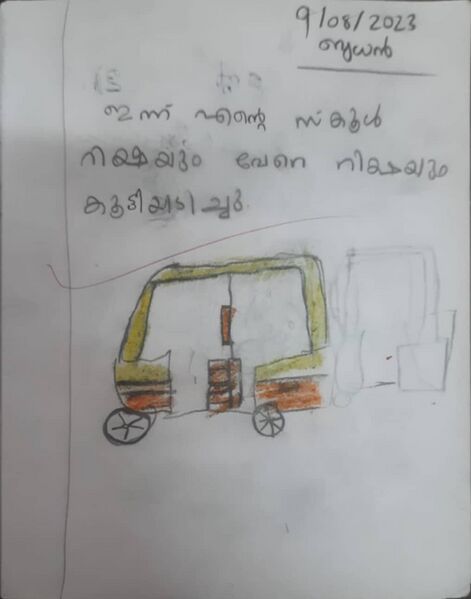 9/08/2023
ബുധൻ
ഇന്ന് എന്റെ സ്കൂൾ
റിക്ഷയും വേറെ റിക്ഷയും
കൂട്ടിയടിച്ചു.